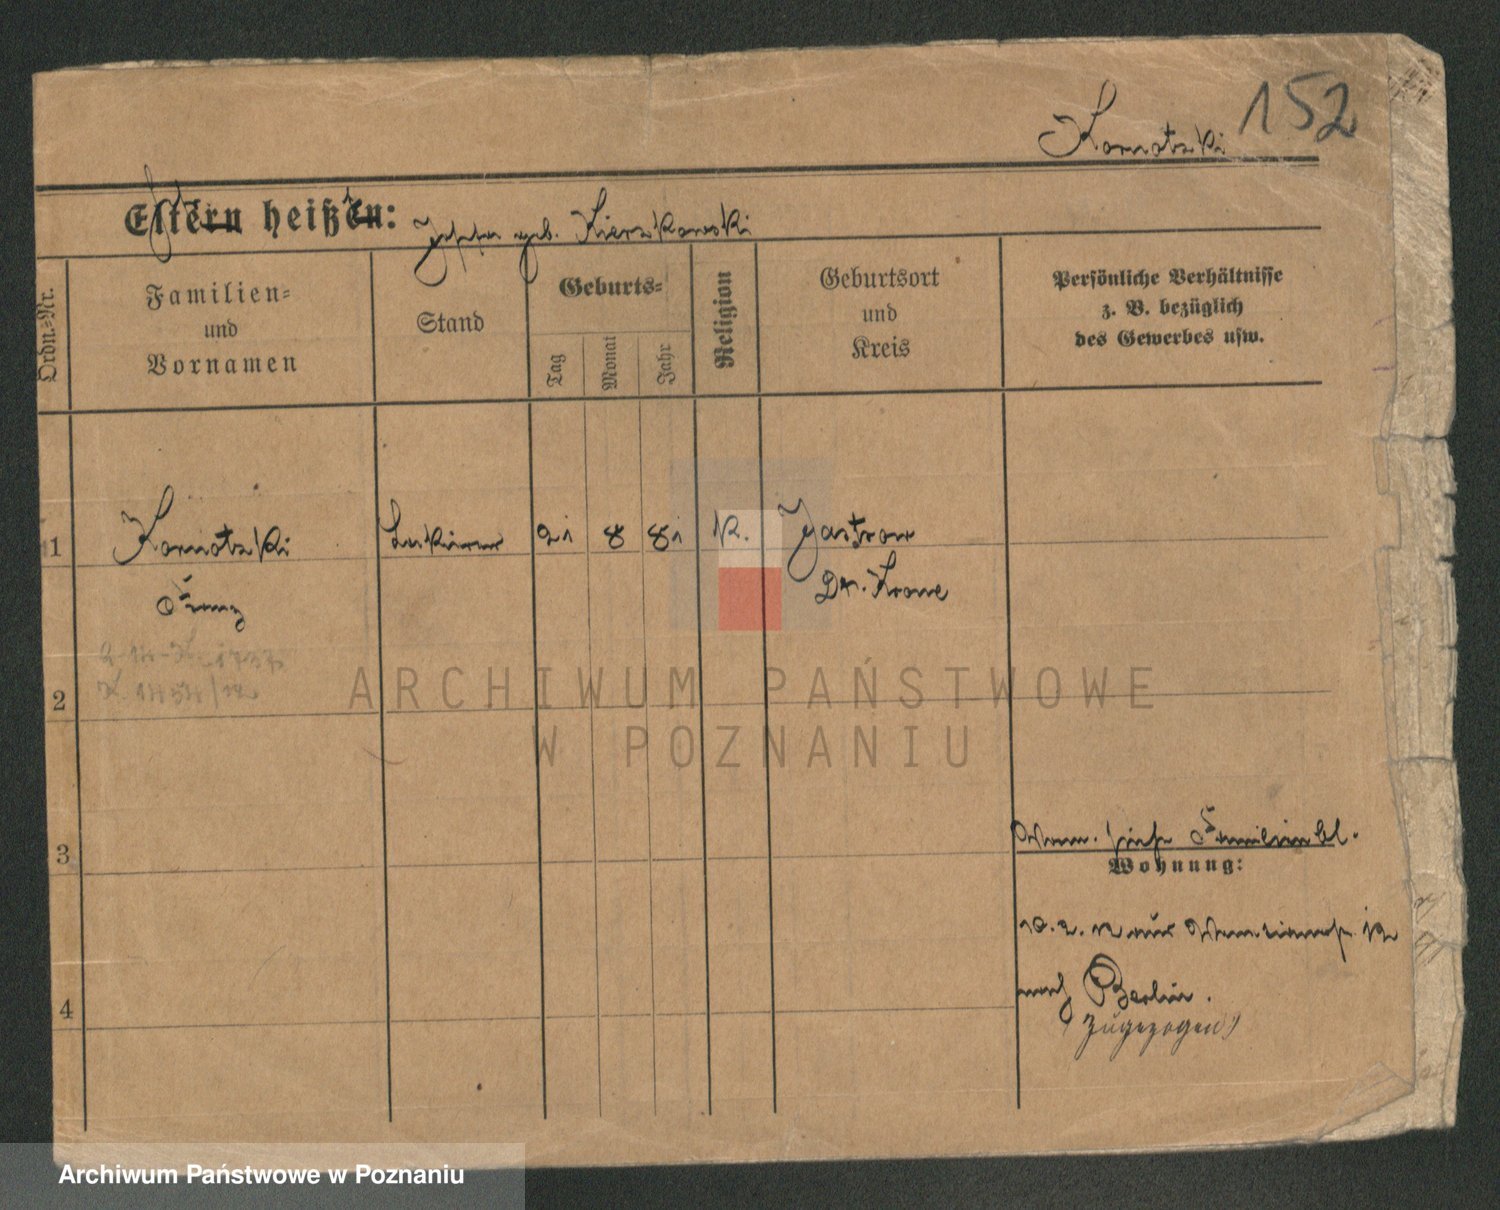 152
Kornotzki
Eltern heißen:
geb. Kierzkowski
Ordn.-Nr.
Familien-
und
Vornamen
Stand
Geburts-
Tag
Monat
Jahr
Religion
Geburtsort
und
Kreis
Persönliche Verhältnisse
z. B. bezüglich
des Gewerbes usw.
1
Kornotzki
21
8
81
K.
Jastrow
Franz
Dt. Krone
2
3
siehe Familienbl.
Wohnung:
4
10. 2. 12 aus
12
nach Berlin.
(zugezogen)
ARCHIWUM PAŃSTWOWE
W POZNANIU
Archiwum Państwowe w Poznaniu